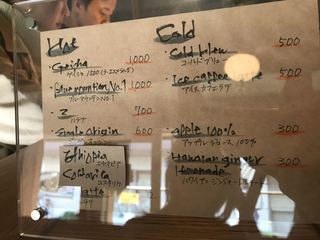 Hot
Geisha 1,000
Blue mountain No.1 1000
ブルーマウンテンNO.1
2 700
ハテナ
Single Origin 600
Ethiopia
エチオピア
Costarica
コスタリカ
Cold
Cold brew 500
コールドブリュー
Ice caffee latte 500
アイスカフェラテ
apple 100% 300
アップルジュース 100%
Hawaian ginger 300
Lemonade
ハワイアンジンジャー